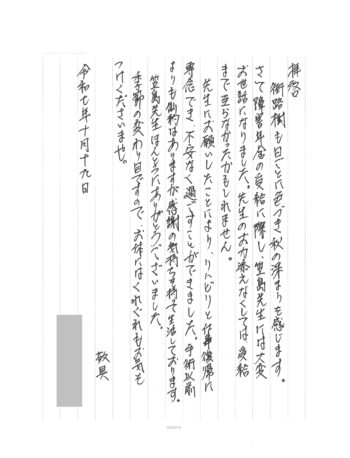 拝啓
街路樹も日ごとに色づき秋の深まりを感じます。
さて障害年金の受給に際し、笠島先生には大変
お世話になりました。先生のお力添えなくしては受給
まで至らなかったかもしれません。
先生にお願いしたことにより、りハビリと仕事復帰に
専念でき、不安なく過ごすことができました。手術以前
よりも制約はありますが感謝の気持ちを持って生活しております。
笠島先生ほんとうにありがとうございました。
季節の変わり目ですので、お体にはくれぐれもお気を
つけくださいませ。
敬具
令和七年十月十九日